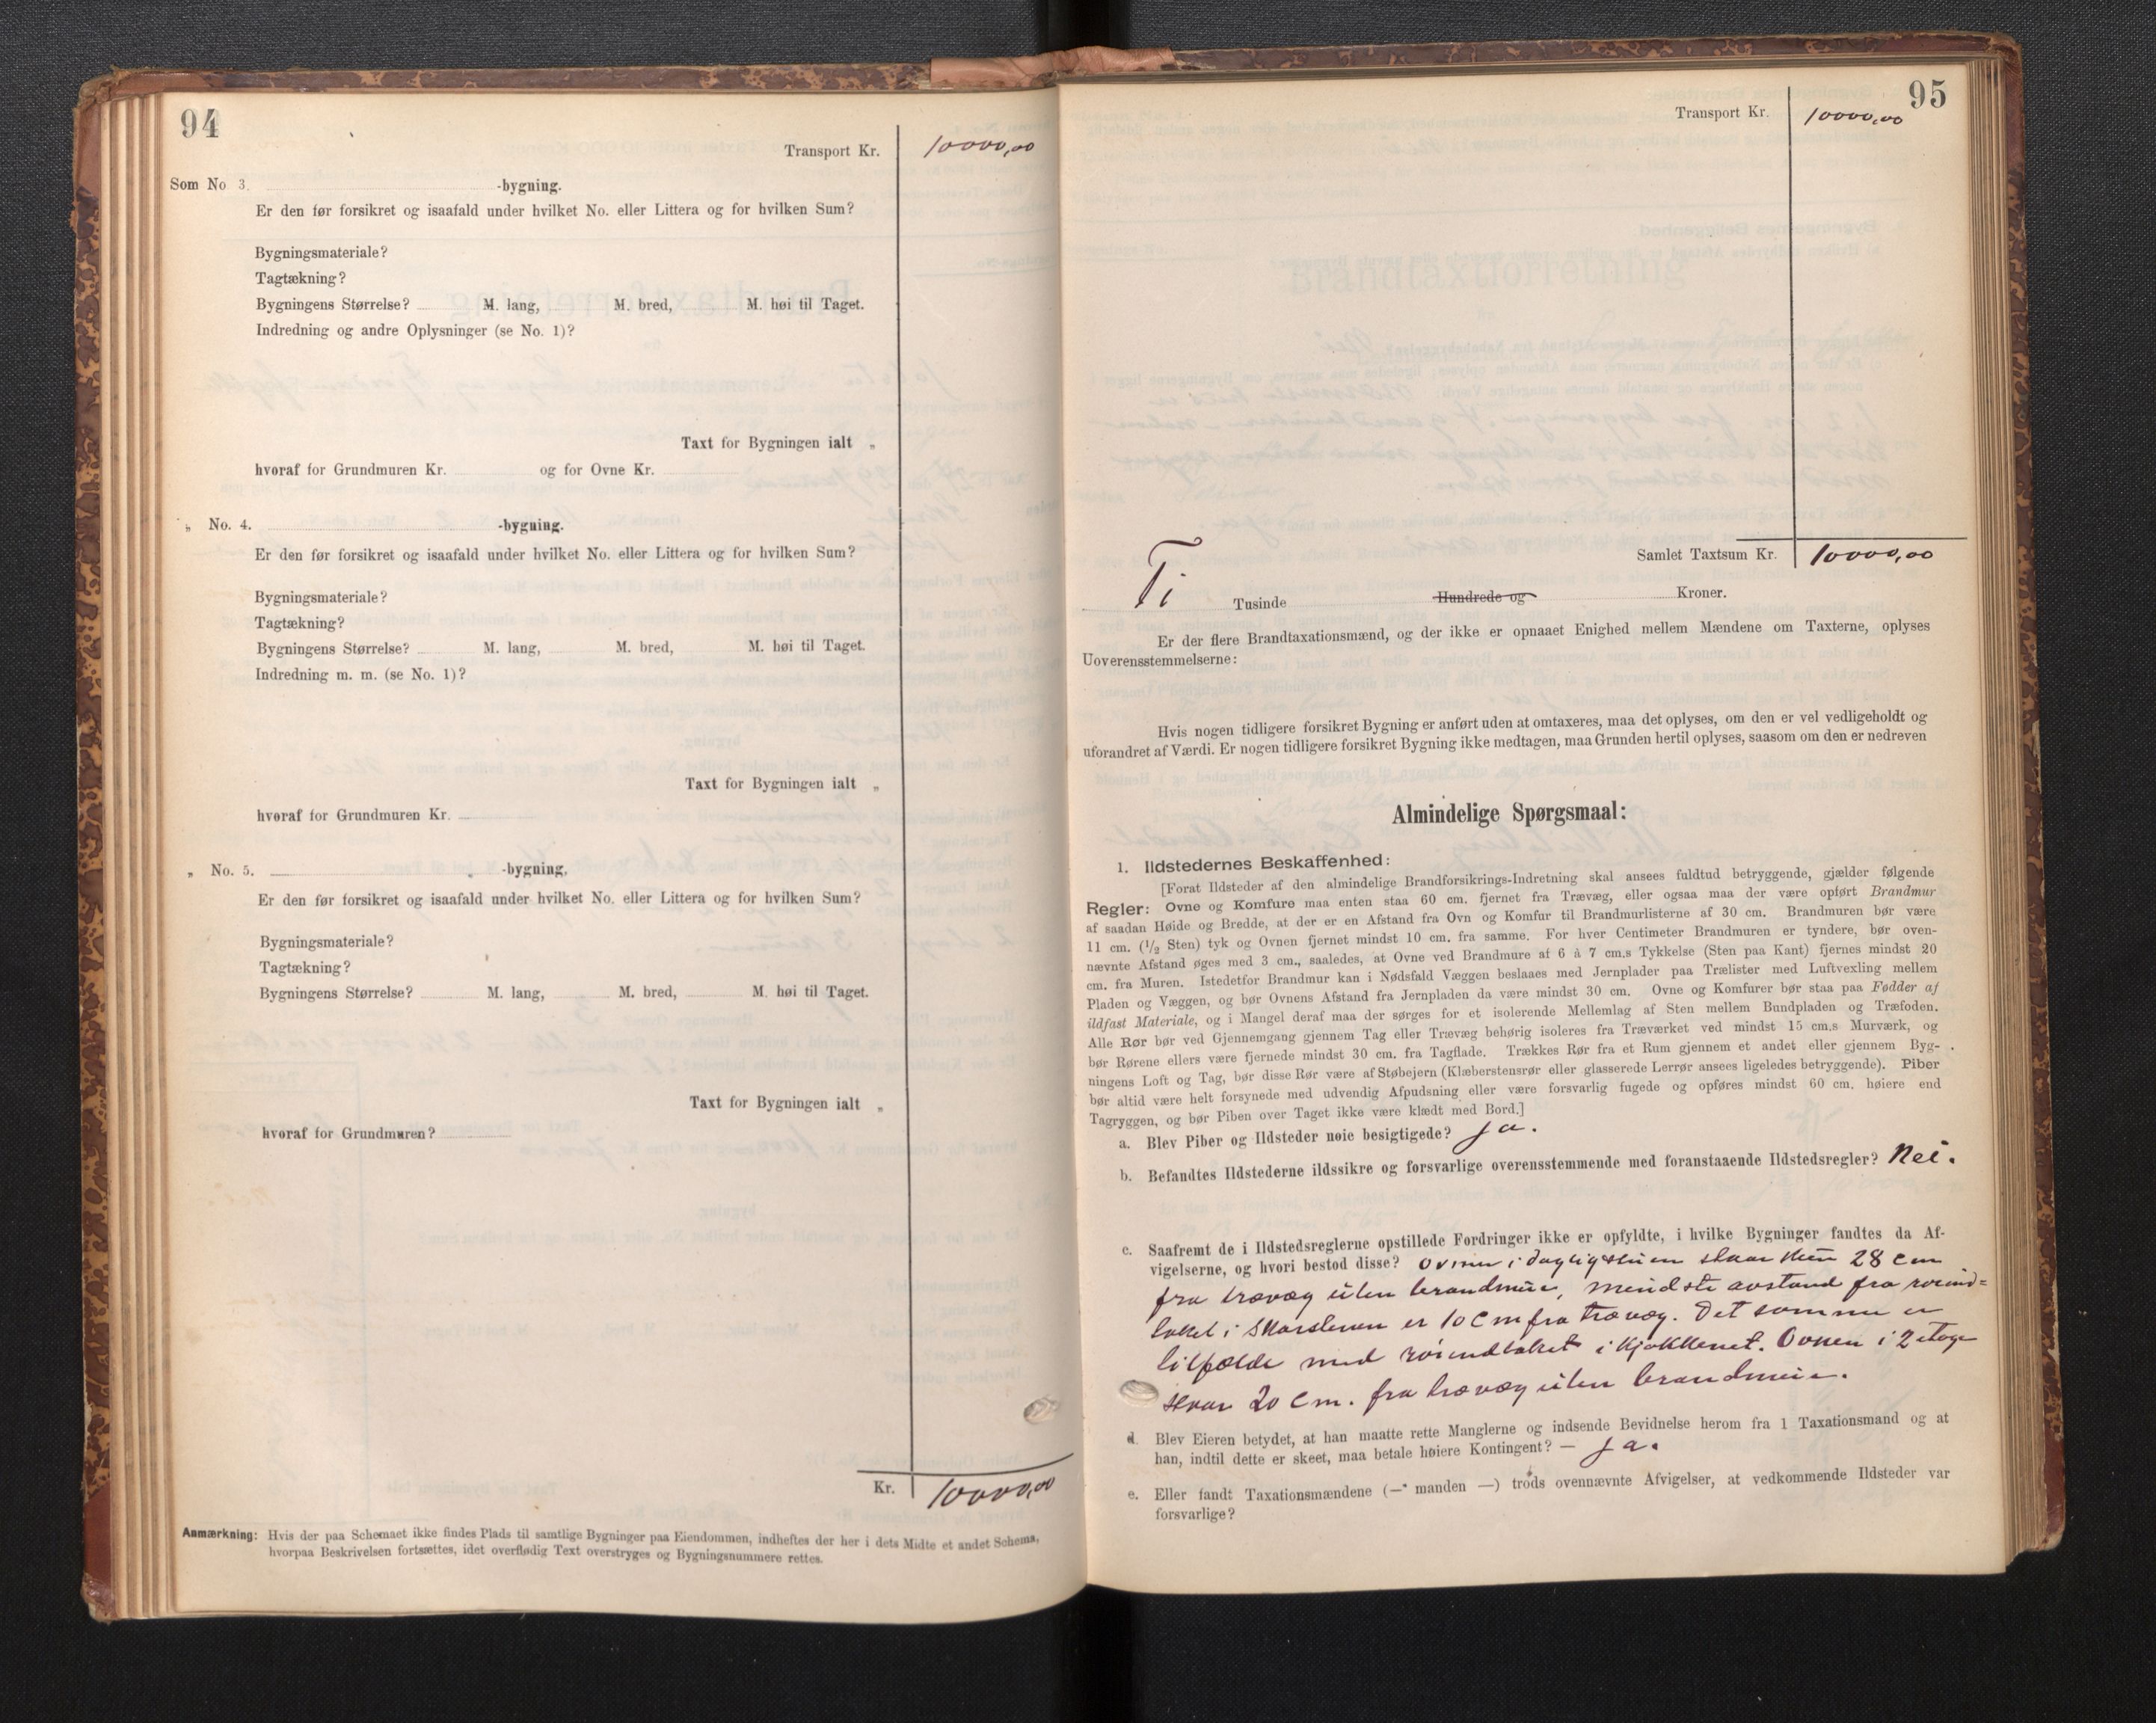 94
Transport Kr. 10000,00
Som No 3. -bygning.
Er den før forsikret og isaafald under hvilket No. eller Littera og for hvilken Sum?
Bygningsmateriale?
Tagtækning?
Bygningens Størrelse? M. lang, M. bred, M. høi til Taget.
Indredning og andre Oplysninger (se No. 1)?
Taxt for Bygningen ialt „
hvoraf for Grundmuren Kr. og for Ovne Kr.
„ No. 4. -bygning.
Er den før forsikret og isaafald under hvilket No. eller Littera og for hvilken Sum?
Bygningsmateriale?
Tagtækning?
Bygningens Størrelse? M. lang, M. bred, M. høi til Taget.
Indredning m. m. (se No. 1)?
Taxt for Bygningen ialt „
hvoraf for Grundmuren Kr.
„ No. 5. -bygning.
Er den før forsikret og isaafald under hvilket No. eller Littera og for hvilken Sum?
Bygningsmateriale?
Tagtækning?
Bygningens Størrelse? M. lang, M. bred, M. høi til Taget.
Taxt for Bygningen ialt „
hvoraf for Grundmuren?
Kr. 10000,00
Anmærkning: Hvis der paa Schemaet ikke findes Plads til samtlige Bygninger paa Eiendommen, indheftes der her i dets Midte et andet Schema,
hvorpaa Beskrivelsen fortsættes, idet overflødig Text overstryges og Bygningsnummere rettes.
95
Transport Kr. 10000,00
Samlet Taxtsum Kr. 10000,00
Ti Tusinde Hundrede og Kroner.
Er der flere Brandtaxationsmænd, og der ikke er opnaaet Enighed mellem Mændene om Taxterne, oplyses
Uoverensstemmelserne:
Hvis nogen tidligere forsikret Bygning er anført uden at omtaxeres, maa det oplyses, om den er vel vedligeholdt og
uforandret af Værdi. Er nogen tidligere forsikret Bygning ikke medtagen, maa Grunden hertil oplyses, saasom om den er nedreven
Almindelige Spørgsmaal:
1. Ildstedernes Beskaffenhed:
[Forat Ildsteder af den almindelige Brandforsikrings-Indretning skal ansees fuldtud betryggende, gjælder følgende
Regler: Ovne og Komfure maa enten staa 60 cm. fjernet fra Trævæg, eller ogsaa maa der være opført Brandmur
af saadan Høide og Bredde, at der er en Afstand fra Ovn og Komfur til Brandmurlisterne af 30 cm. Brandmuren bør være
11 cm. (1/2 Sten) tyk og Ovnen fjernet mindst 10 cm. fra samme. For hver Centimeter Brandmuren er tyndere, bør oven-
nævnte Afstand øges med 3 cm., saaledes, at Ovne ved Brandmure af 6 à 7 cm.s Tykkelse (Sten paa Kant) fjernes mindst 20
cm. fra Muren. Istedetfor Brandmur kan i Nødsfald Væggen beslaaes med Jernplader paa Trælister med Luftvexling mellem
Pladen og Væggen, og bør Ovnens Afstand fra Jernpladen da være mindst 30 cm. Ovne og Komfurer bør staa paa Fødder af
ildfast Materiale, og i Mangel deraf maa der sørges for et isolerende Mellemlag af Sten mellem Bundpladen og Træfoden.
Alle Rør bør ved Gjennemgang gjennem Tag eller Trævæg behørig isoleres fra Træværket ved mindst 15 cm.s Murværk, og
bør Rørene ellers være fjernede mindst 30 cm. fra Tagflade. Trækkes Rør fra et Rum gjennem et andet eller gjennem Byg-
ningens Loft og Tag, bør disse Rør være af Støbejern (Klæberstensrør eller glasserede Lerrør ansees ligeledes betryggende). Piber
bør altid være helt forsynede med udvendig Afpudsning eller være forsvarlig fugede og opføres mindst 60 cm. høiere end
Tagryggen, og bør Piben over Taget ikke være klædt med Bord.]
a. Blev Piber og Ildsteder nøie besigtigede? Ja.
b. Befandtes Ildstederne ildssikre og forsvarlige overensstemmende med foranstaaende Ildstedsregler? Nei.
c. Saafremt de i Ildstedsreglerne opstillede Fordringer ikke er opfyldte, i hvilke Bygninger fandtes da Af-
vigelserne, og hvori bestod disse? Ovnen i dagligstuen staar kun 28 cm
fra trævæg uten brandmur, mindste avstand fra rørind-
taket i skorstenen er 10 cm fra trævæg. Det samme er
tilfælde med rørindtaket i kjøkkenet. Ovnen i 2 etage
staar 20 cm. fra trævæg uten brandmur.
d. Blev Eieren betydet, at han maatte rette Manglerne og indsende Bevidnelse herom fra 1 Taxationsmand og at
han, indtil dette er skeet, maa betale høiere Kontingent? — Ja.
e. Eller fandt Taxationsmændene (— manden —) trods ovennævnte Afvigelser, at vedkommende Ildsteder var
forsvarlige?